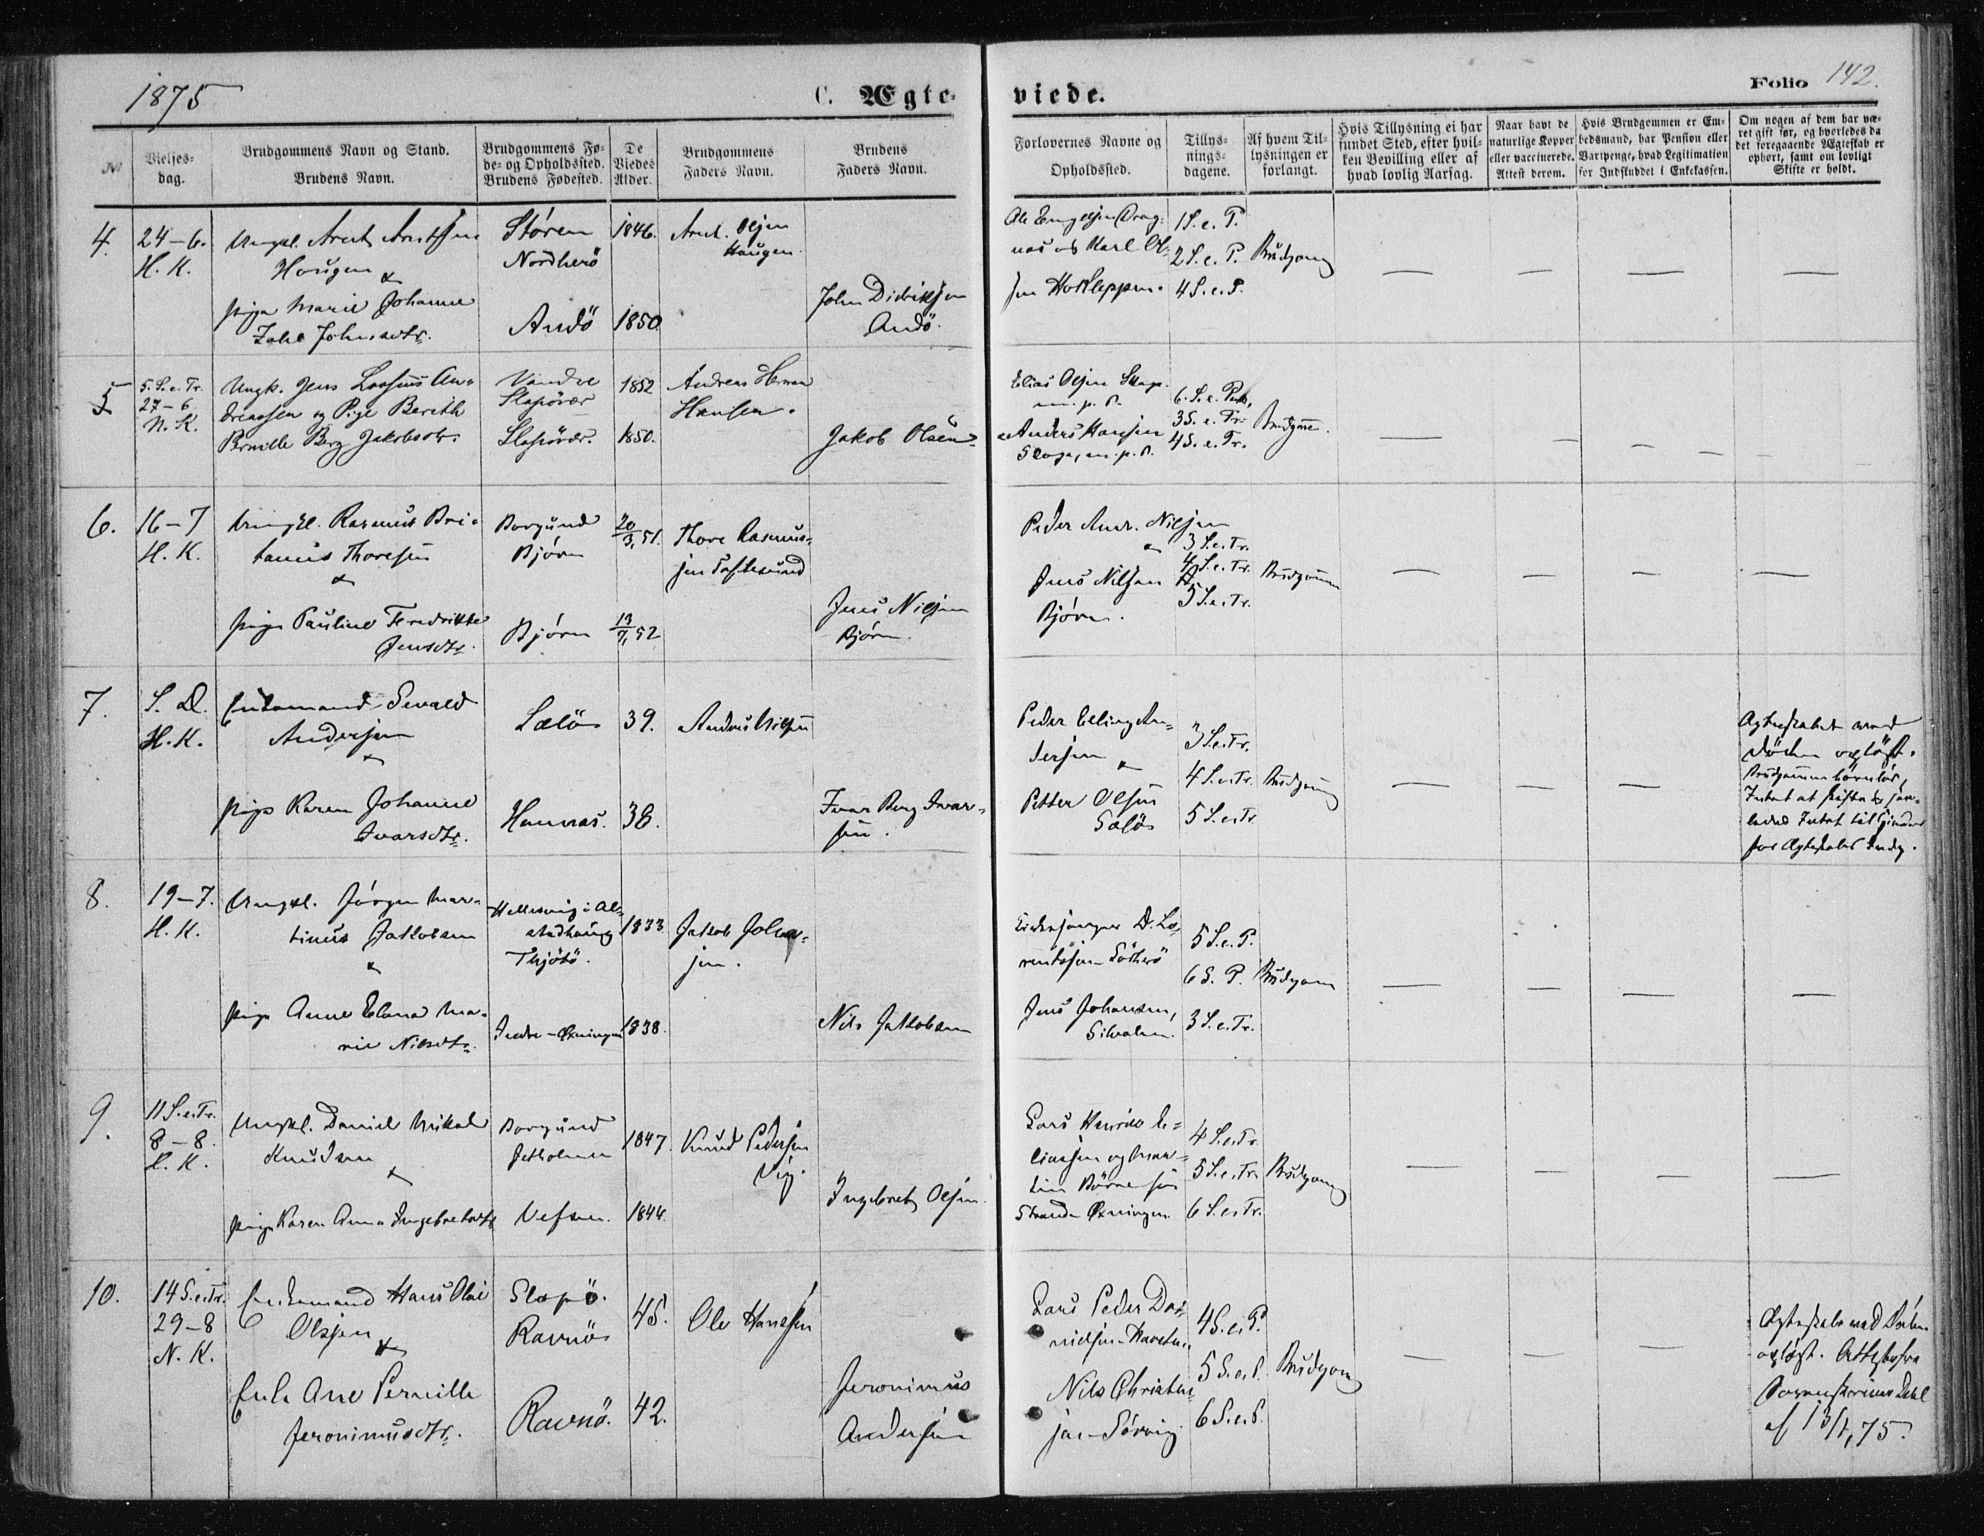 1875
C. Ægte-
viede.
Folio 142.
№
Vielses-
dag.
Brudgommens Navn og Stand.
Brudens Navn.
Brudgommens Fø-
de- og Opholdssted.
Brudens Fødested.
De
Viedes
Alder.
Brudgommens
Faders Navn.
Brudens
Faders Navn.
Forlovernes Navne og
Opholdssted.
Tillys-
nings-
dagene.
Af hvem Til-
lysningen er
forlangt.
Hvis Tillysning ei har
fundet Sted, efter hvil-
ken Bevilling eller af
hvad lovlig Aarsag.
Naar havt de
naturlige Kopper
eller vaccinerede.
Attest derom.
Hvis Brudgommen er Em-
bedsmand, har Pension eller
Vartpenge, hvad Legitimation
for Indskuddet i Enkekassen.
Om nogen af dem har væ-
ret gift før, og hvorledes da
det foregaaende Ægteskab er
ophørt, samt om lovligt
Skifte er holdt.
4.
24-6.
H. K.
Ungkl. Arnt Arntsen
Haugen
&
Pige Marie Johanne
Johnsdtr.
Støren
Nordherö
Andö
1846.
1850
Arnt Olsen
Haugen.
John Didriksen
Andö.
Ole Engelsen
og Karl Ol-
sen
1 S. e. P.
2 S. e. P.
4 S. e. P.
Brudgom
5
5. S. e. Tr.
27-6
N. K.
Ungk. Jens An-
dreassen og Pige Bereth
Pernille Berg Jakobsdtr.
Slapövær
Slapövær.
1852
1850.
Andreas
Hansen.
Jakob Olsen
Elias Olsen
m. p. P.
Anders Hansen
m. p. P.
6. S. e. Paas.
3 S. e. Tr.
4 S. e. Tr.
Brudgom.
6.
16-7
H. K.
Ungkl. Rasmus Bri-
tanus Thoresen
&
Pige Pauline Fredrikke
Jensdtr.
Borgund
Bjørn
Bjørn
20/3, 51.
13/7, 52
Thore Rasmus-
sen
Jens Nilsen
Bjørn.
Peder Andr. Nilsen
&
Jens Nilsen
Bjørn.
3 S. e. Tr.
4 S. e. Tr.
5 S. e. Tr.
Brudgom
7.
S. D.
H. K.
Enkemand Sevald
Andersen
&
Pige Karen Johanne
Ivarsdtr.
Sælö
Hannæs.
39.
38.
Anders Nilsen
Ivar Berg Ivar-
sen.
Peder Elling An-
dersen &
Petter Olsen
Sælö
3 S. e. Tr.
4 S. e. Tr.
5 S. e. Tr.
Brudgom
Ægteskabet med
Döden oplöst.
Brudgommen barnlös,
Intet at skifte
Intet til Hinder
for Ægteskabs Indg.
8.
19-7.
H. K.
Ungkl. Jörgen Mar-
tinus Jakobsen
&
Pige Anne Elena Ma-
rie Nilsdtr.
i Al-
stadhaug
Thjötö.
Indre-Øxningen
1833
1838.
Jakob Johan-
sen.
Nils Jakobsen
D. Lo-
rentzen
Jens Johansen,
Silvalen
5 S. e. P.
6 S. P.
3 S. e. Tr.
Brudgom
9.
11 S. e. Tr.
8-8.
H. K.
Ungkl. Daniel Mikal
Knudsen
&
Pige Karen Anna Ingebretsdtr
Borgund
Vefsen.
1847.
1844.
Knud Pedersen
Vig.
Ingebret Olsen.
Lars Henrik E-
liassen og Mar-
tin
Øxningen
4 S. e. Tr.
5 S. e. Tr.
6 S. e. Tr.
Brudgom
10.
14 S. e. Tr.
29-8
N. K.
Enkemand Hans Olai
Olsen
&
Enke Ane Pernille
Jeronimusdtr.
Slapö.
Ravnö
Ravnö.
45.
42.
Ole Hansen
Jeronimus
Andersen
Lars Peder Da-
nielsen
Nils Christen-
sen
4 S. e. P.
5 S. e. P.
6 S. e. P.
Brudgom
Ægteskabet med Döden
oplöst. Attest fra
Dahl
af 13/7, 75.